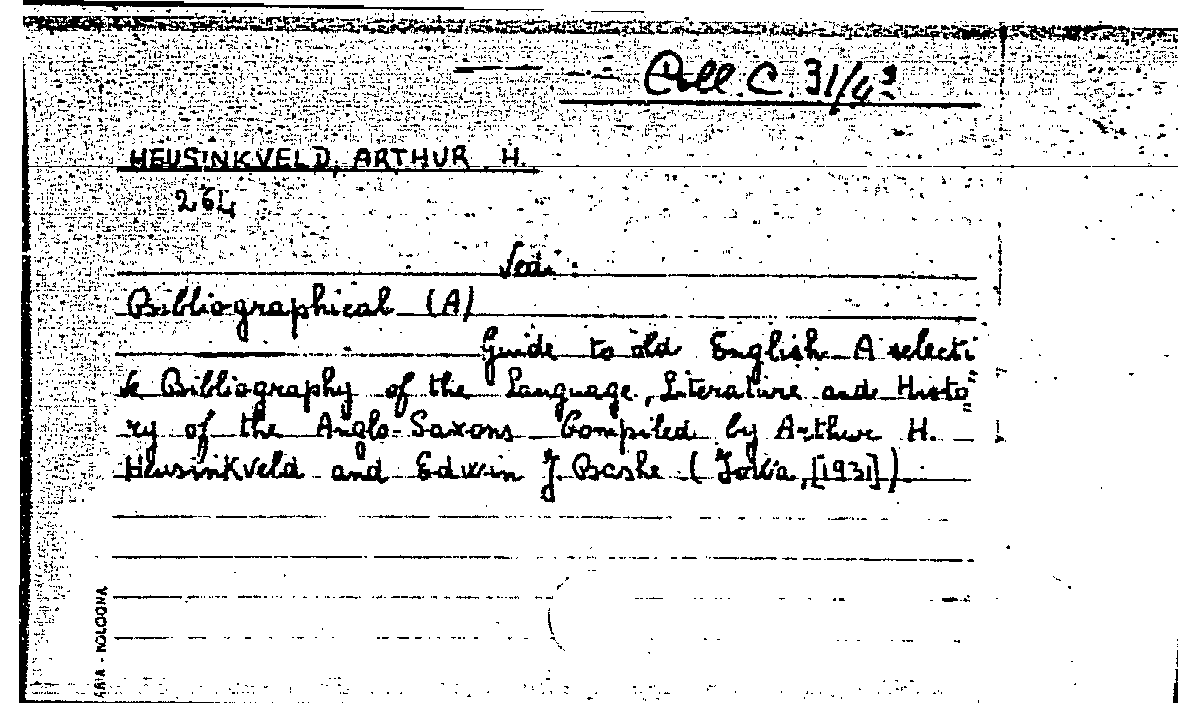 Coll. C. 31/4²
HEUSINKVELD, ARTHUR H.
264
Vedi:
Bibliographical (A)
Guide to old English A selecti
ve Bibliography of the Language, Literature and Histo=
ry of the Anglo-Saxons Compiled by Arthur H.
Heusinkveld and Edwin J. Bashe (Jowa, [1931])
BOLOGNA